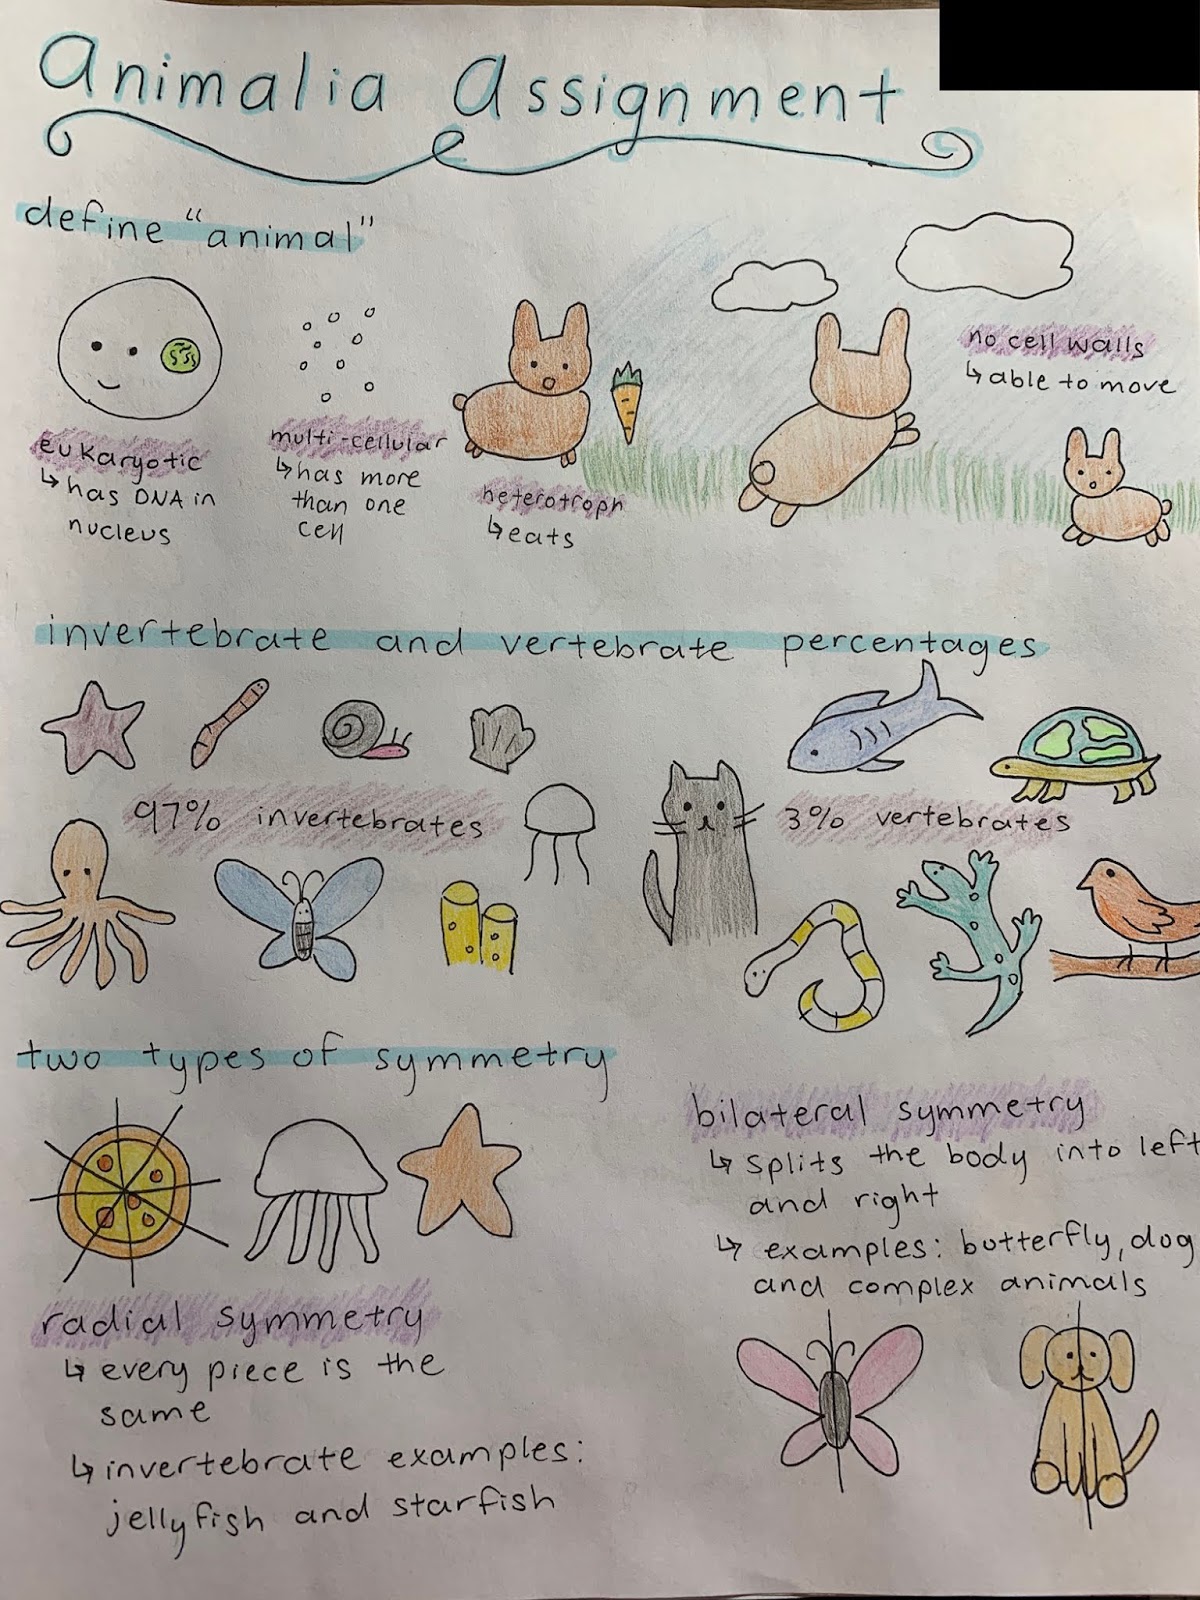 Animalia Assignment
define "animal"
eukaryotic
↳ has DNA in
nucleus
multi-cellular
↳ has more
than one
cell
heterotroph
↳ eats
no cell walls
↳ able to move
invertebrate and vertebrate percentages
97% invertebrates
3% vertebrates
two types of symmetry
radial symmetry
↳ every piece is the
same
↳ invertebrate examples:
jellyfish and starfish
bilateral symmetry
↳ splits the body into left
and right
↳ examples: butterfly, dog
and complex animals